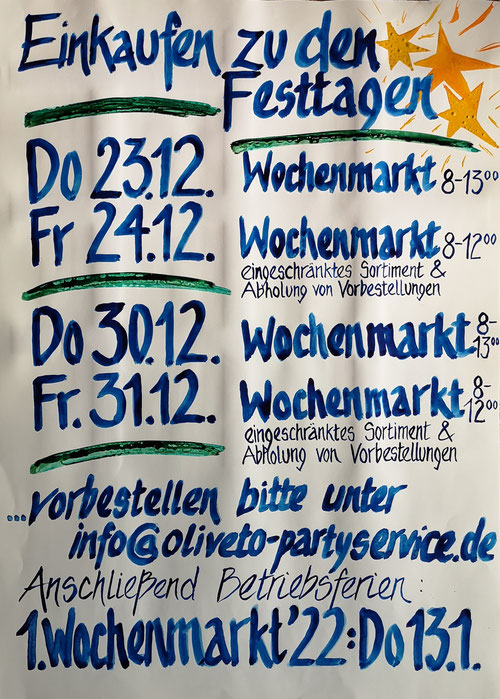 Einkaufen zu den
Festtagen
Do 23.12. Wochenmarkt 8-13⁰⁰
Fr 24.12. Wochenmarkt 8-12⁰⁰
eingeschränktes Sortiment &
Abholung von Vorbestellungen
Do 30.12. Wochenmarkt 8-13⁰⁰
Fr. 31.12. Wochenmarkt 8-12⁰⁰
eingeschränktes Sortiment &
Abholung von Vorbestellungen
...vorbestellen bitte unter
info@oliveto-partyservice.de
Anschließend Betriebsferien:
1.Wochenmarkt '22: Do 13.1.